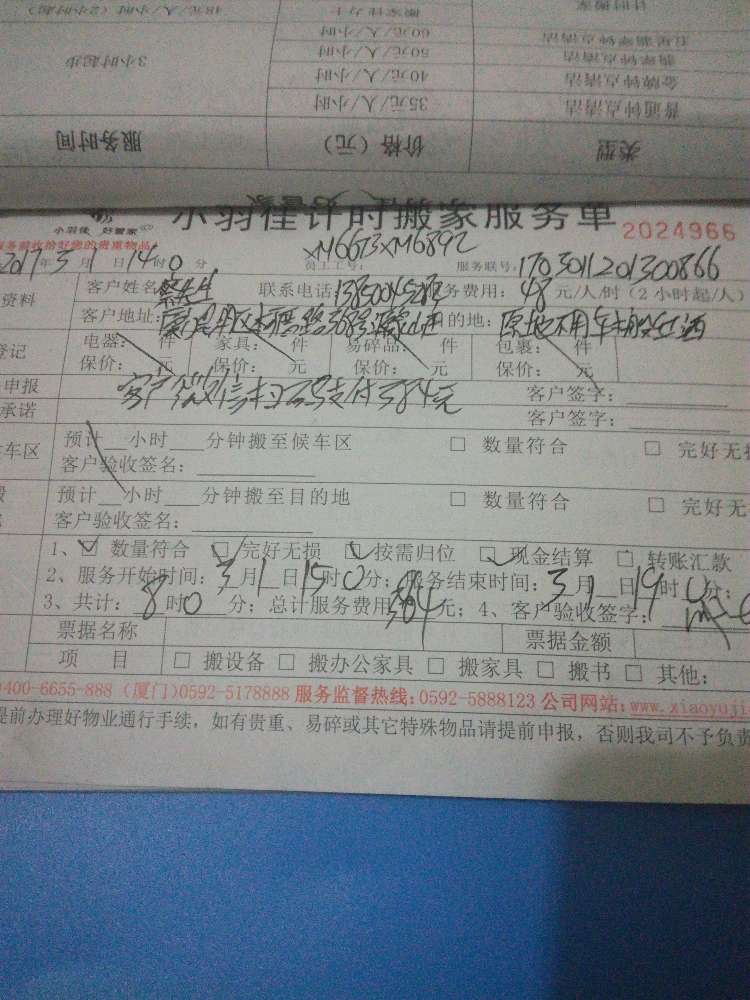 计时搬家 搬家佳力士 48元/人/小时(2小时起)
五星钟点清洁 60元/人/小时
翡翠钟点清洁 50元/人/小时
金牌钟点清洁 40元/人/小时 3小时起步
普通钟点清洁 35元/人/小时
类型 价格(元) 服务时间
小羽佳计时搬家服务单 2024966
小羽佳 好管家
服务前收拾好您的贵重物品 XM6673XM6892
2017年3月1日14时0分 员工工号: 服务联号:1703011201300866
资料 客户姓名:蔡先生 联系电话: 服务费用:48元/人/时(2小时起/人)
客户地址: 目的地:原地不用车
登记 电器: 件 家具: 件 易碎品: 件 包裹: 件
保价: 元 保价: 元 保价: 元 保价: 元
申报 客户微信扫码支付384元 客户签字:
承诺 客户签字:
车区 预计 小时 分钟搬至候车区 □ 数量符合 □ 完好无损
客户验收签名:
预计 小时 分钟搬至目的地 □ 数量符合 □ 完好无
客户验收签名:
1、☑ 数量符合 ☑ 完好无损 ☑ 按需归位 ☑ 现金结算 □ 转账汇款
2、服务开始时间:3月1日15时0分;服务结束时间:3月1日19时0分;
3、共计:8时0分;总计服务费用384元;4、客户验收签字:
票据名称 票据金额
项 目 □ 搬设备 □ 搬办公家具 □ 搬家具 □ 搬书 □ 其他:
400-6655-888 (厦门)0592-5178888 服务监督热线:0592-5888123 公司网站:www.xiaoyuji
提前办理好物业通行手续,如有贵重、易碎或其它特殊物品请提前申报,否则我司不予负责